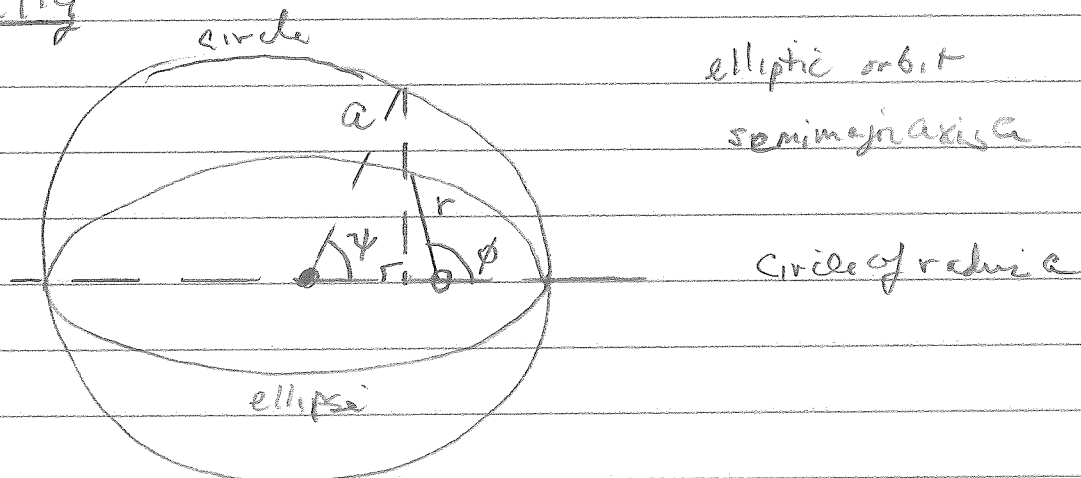 circle
elliptic orbit
a
semimajor axis a
r
ψ
r
φ
Circle of radius a
ellipse